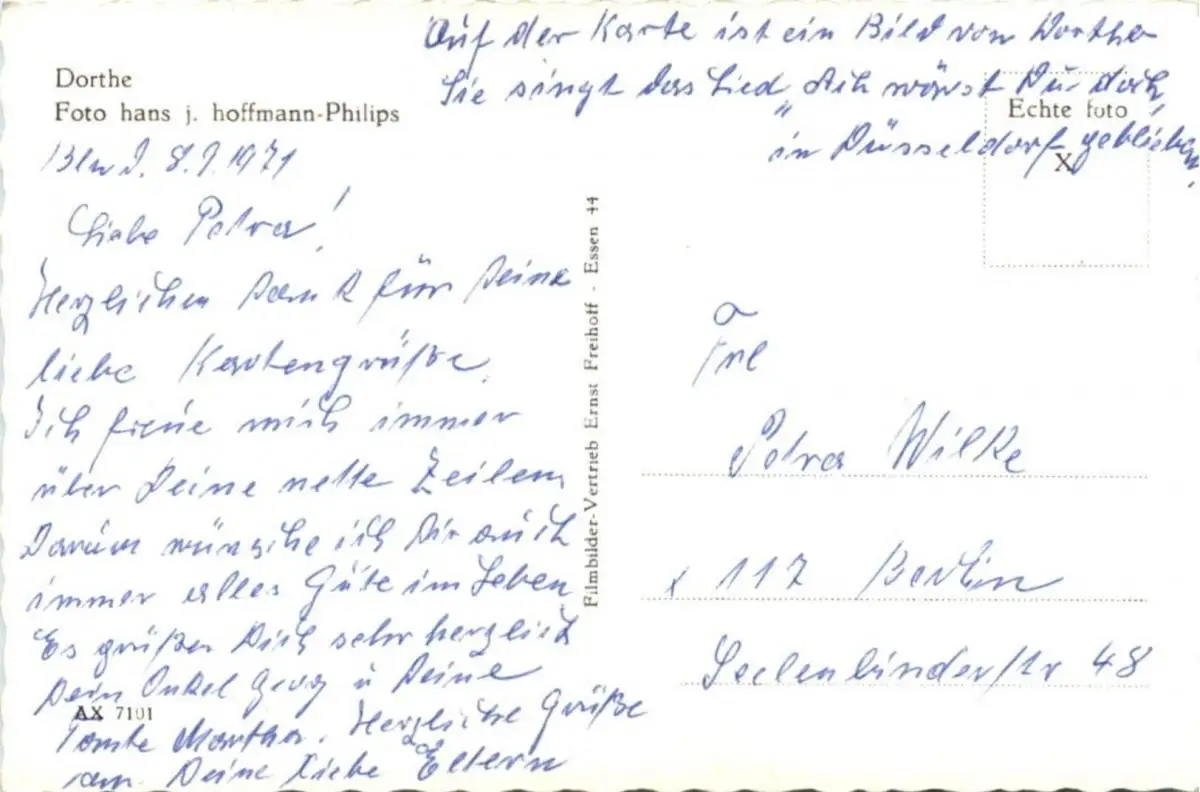 Auf der Karte ist ein Bild von Dorthe
Sie singt das Lied „Ach wärst Du doch
in Düsseldorf geblieben
Dorthe
Foto hans j. hoffmann-Philips
Echte foto
X
1971
Liebe Petra!
Herzlichen Dank für Deine
liebe Kartengrüße.
Ich freue mich immer
über Deine nette Zeilen
Darum wünsche ich Dir auch
immer alles Gute im Leben
Es grüßen Dich sehr herzlich
Dein Onkel Georg u Deine
AX 7101
Tante Martha. Herzliche Grüße
an Deine liebe Eltern
Filmbilder-Vertrieb Ernst Freihoff - Essen 44
Frl
Petra Wilke
117 Berlin
Seelenbinderstr 48